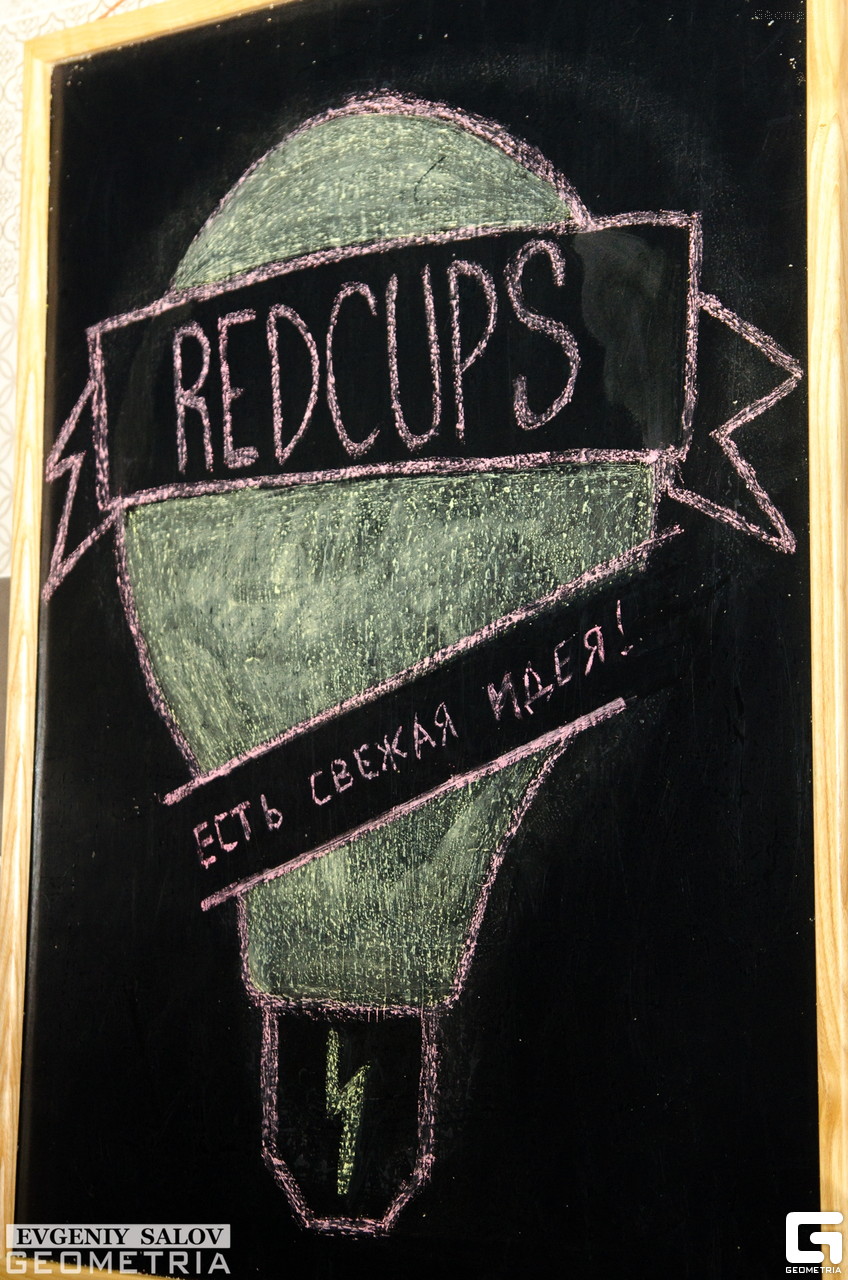 REDCUPS
ЕСТЬ СВЕЖАЯ ИДЕЯ!
EVGENIY SALOV
GEOMETRIA
GEOMETRIA